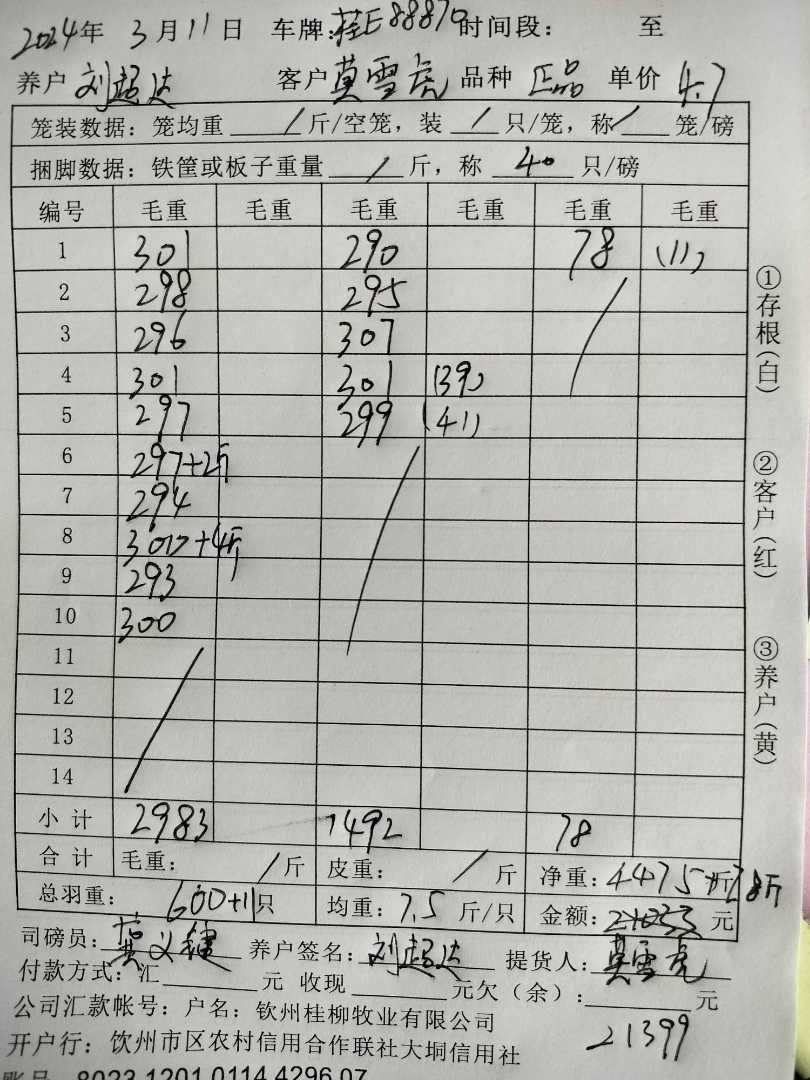 2024年 3月11日 车牌:桂E88870 时间段: 至
养户 刘超达 客户 莫雪虎 品种 正品 单价 4.7
笼装数据: 笼均重 / 斤/空笼, 装 / 只/笼, 称 / 笼/磅
捆脚数据: 铁筐或板子重量 / 斤, 称 40 只/磅
编号 毛重 毛重 毛重 毛重 毛重 毛重
1 301 290 78 (11)
2 298 295 /
3 296 307
4 301 301 (39)
5 297 299 (41)
6 297+2斤 /
7 294
8 300+4斤
9 293
10 300
11 /
12
13
14
小计 2983 1492 78
合计 毛重: / 斤 皮重: / 斤 净重: 4475斤 78斤
总羽重: 600+11只 均重: 7.5 斤/只 金额: 21033 元
司磅员: 莫义健 养户签名: 刘超达 提货人: 莫雪虎
付款方式: 汇 元 收现 元欠(余): 元
21399
公司汇款帐号: 户名: 钦州桂柳牧业有限公司
开户行: 饮州市区农村信用合作联社大垌信用社
账号 8023 1201 0114 4296 07
①存根(白)
②客户(红)
③养户(黄)